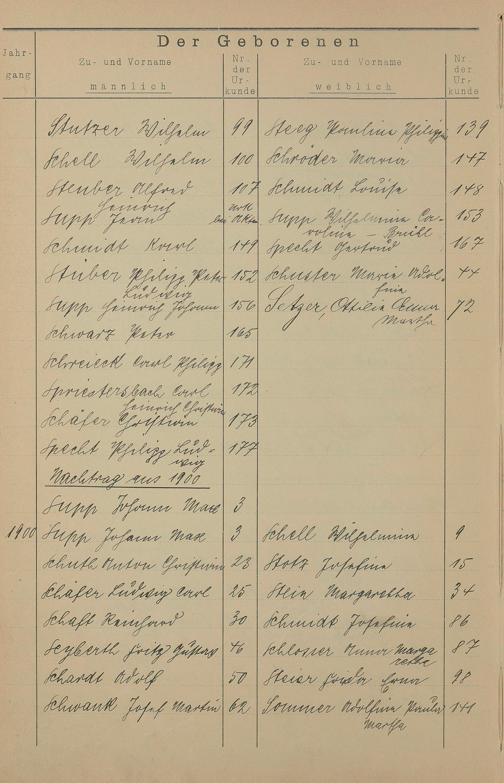 Der Geborenen
Jahr-
gang
Zu- und Vorname
männlich
Nr.
der
Ur-
kunde
Zu- und Vorname
weiblich
Nr.
der
Ur-
kunde
Stutzer Wilhelm 99 Steeg Pauline Philippine 139
Schell Wilhelm 100 Schröder Maria 147
Steuber Alfred 107 Schmidt Louise 148
Heinrich
Supp Jean Supp Wilhelmine Ca- 153
roline
Schmidt Karl 149 Specht Gertrud 167
Stüber Philipp Peter 152 Schuster Marie Adol- 44
Ludwig fine
Supp Heinrich Johann 156 Setzer, Ottilie Anna 72
Martha
Schwarz Peter 165
Schreieck Carl Philipp 171
Spriestersbach Carl 172
Heinrich Christian
Schäfer Christian 173
Specht Philipp Lud- 177
wig
Nachtrag aus 1900
Supp Johann Max 3
1900 Supp Johann Max 3 Schell Wilhelmine 9
Schuth Anton Christian 23 Stotz Josefine 15
Schäfer Ludwig Carl 25 Stein Margaretha 34
Schaft Reinhard 30 Schmidt Josefine 86
Seyberth Fritz Gustav 46 Schlosser Anna Marga 87
retha
Schardt Adolf 50 Steier Frieda Erna 98
Schwank Josef Martin 62 Sommer Adolfine Paula 141
Martha